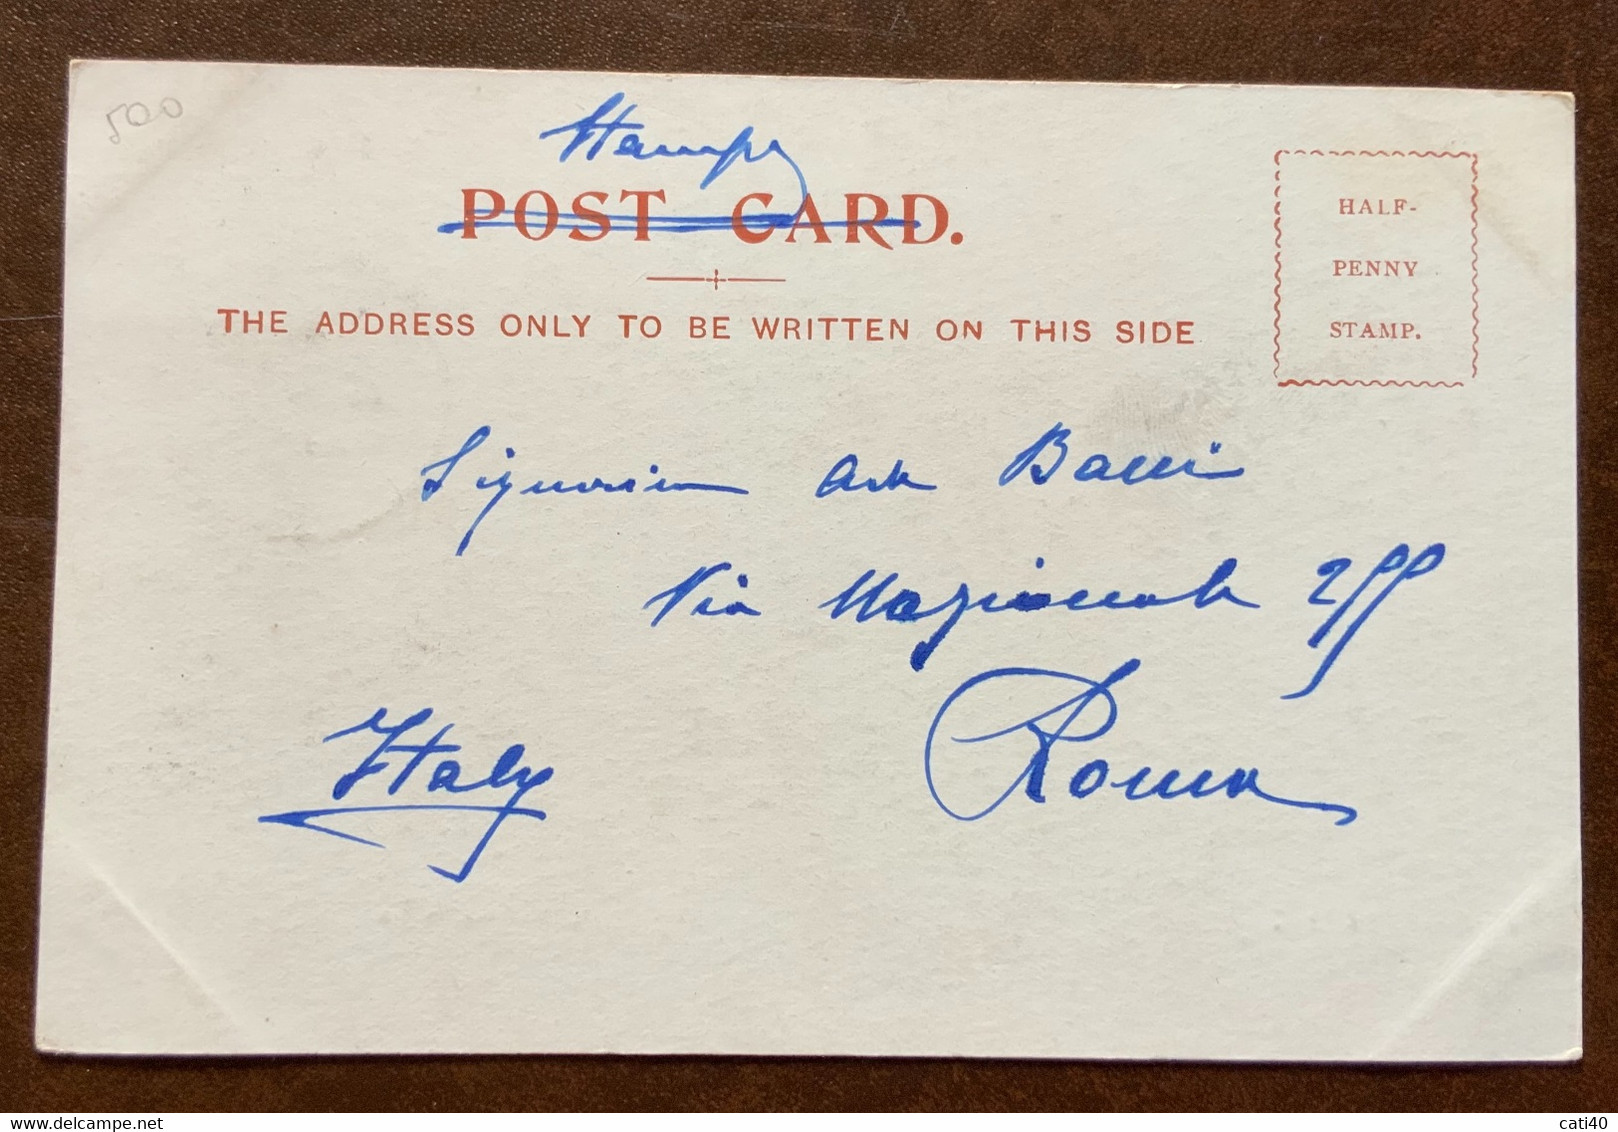 500
Stampe
POST CARD.
THE ADDRESS ONLY TO BE WRITTEN ON THIS SIDE
HALF-
PENNY
STAMP.
Signorina
Via Nazionale
Roma
Italy
cati40